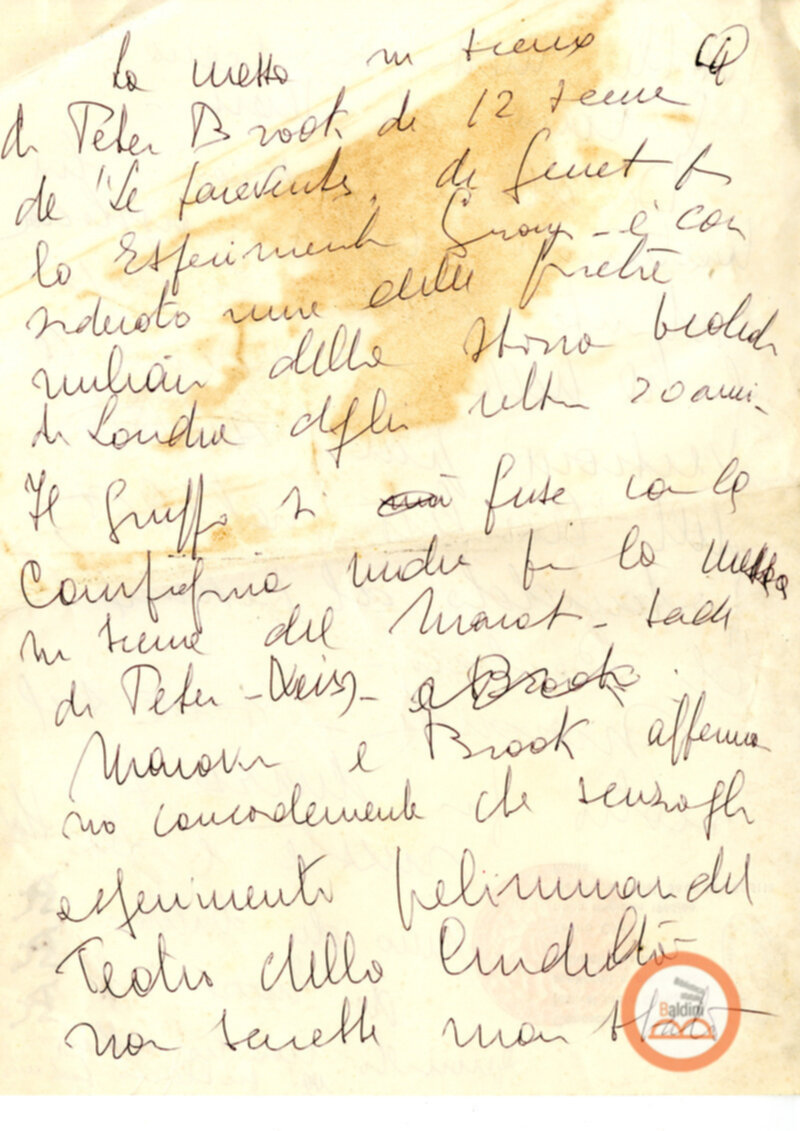 La messa in scena
di Peter Brook di 12 scene
de "Le paravents, di Genet per
lo Esperimental Group - è con
siderato una delle pietre
miliari della storia teatrale
di Londra degli ultimi 20 anni.
Il gruppo si fuse con la
Compagnia madre per la messa
in scena del Marat - Sade
di Peter - Weiss - e Brook.
Marovitz e Brook afferma
no concordemente che senza gli
esperimenti preliminari del
Teatro della Crudeltà
non sarebbe mai stato
Biblioteca
statale
Baldini